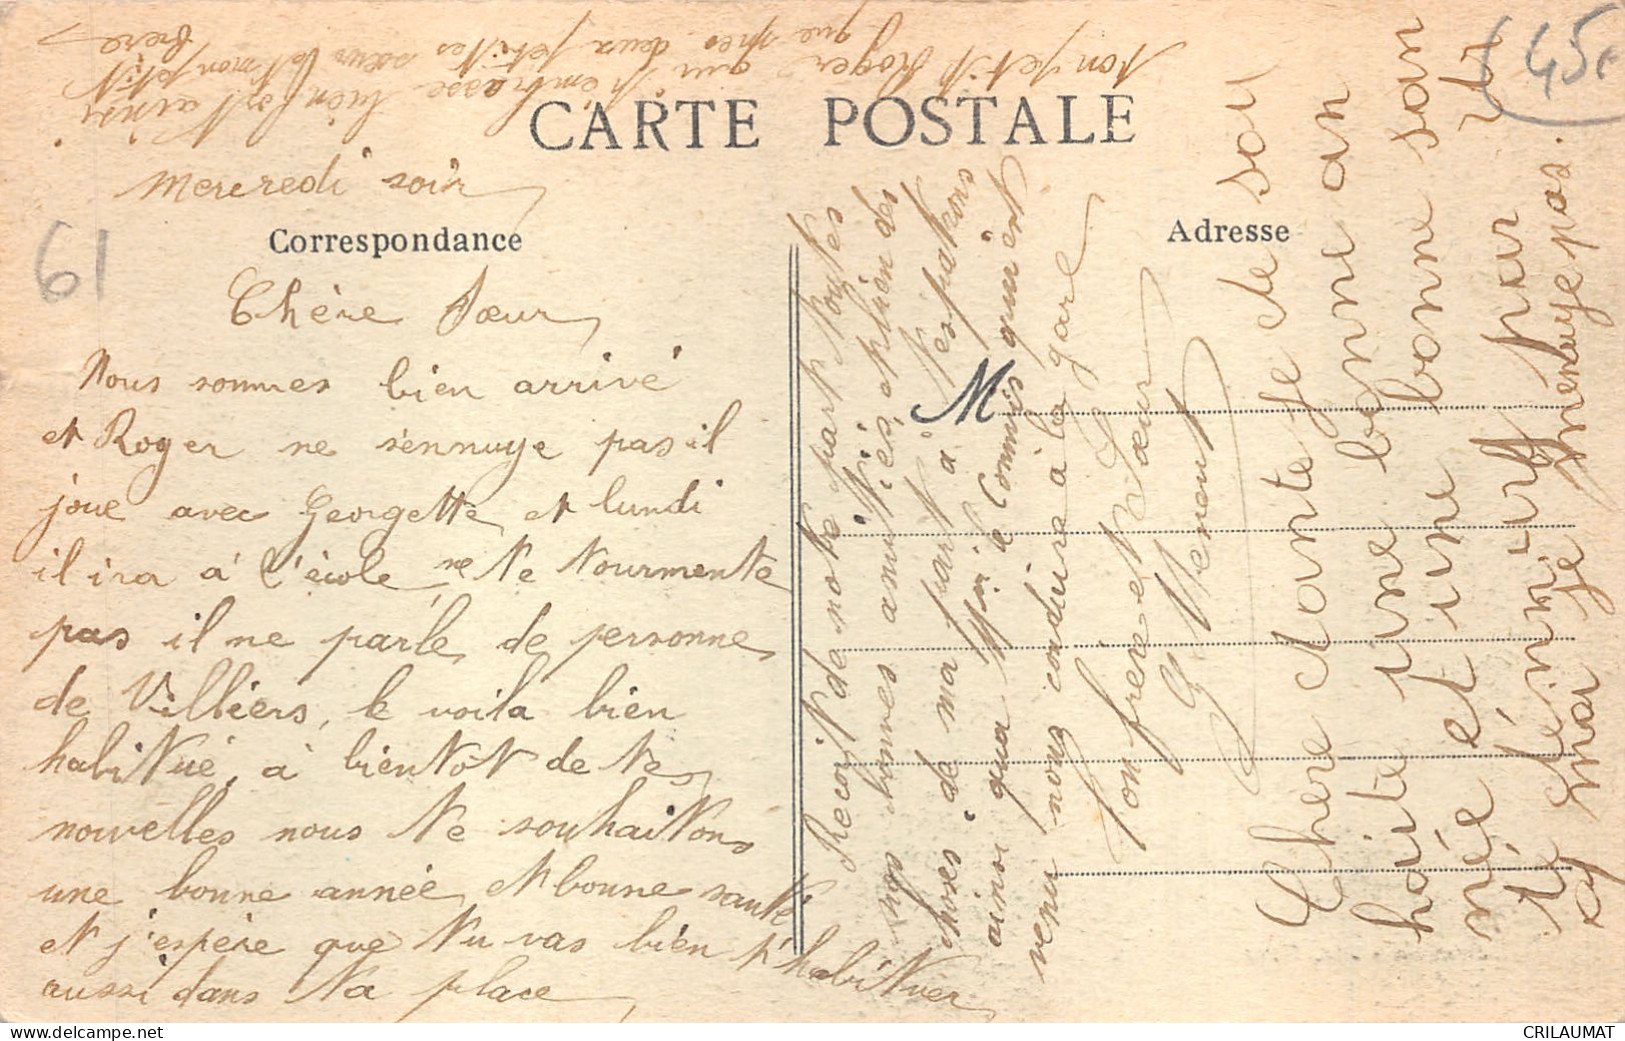 CARTE POSTALE
(45e
61
Mercredi soir
Correspondance
Adresse
Chère Sœur
Nous sommes bien arrivé
et Roger ne s'ennuye pas il
joue avec Georgette et lundi
il ira à l'école, ne te tourmente
pas il ne parle de personne
de Villiers, le voila bien
habitué, à bientôt de tes
nouvelles nous te souhaitons
une bonne année et bonne santé
et j'espère que tu vas bien t'habituer
aussi dans ta place
Recoit de notre part toutes
nos bonnes amitiés et bien des
choses de ma part à
ainsi qua le Commis qui est
venu nous conduire à la gare
Ton frère et Sœur
G
M
Chere tante je te sou
haite une bonne an
née et une bonne san
té Henri-
moi je m'enuye pas.
Ton petit Roger qui t'embrasse bien fort ainsi
que mes deux petites sœur et mon petit
frère
CRILAUMAT